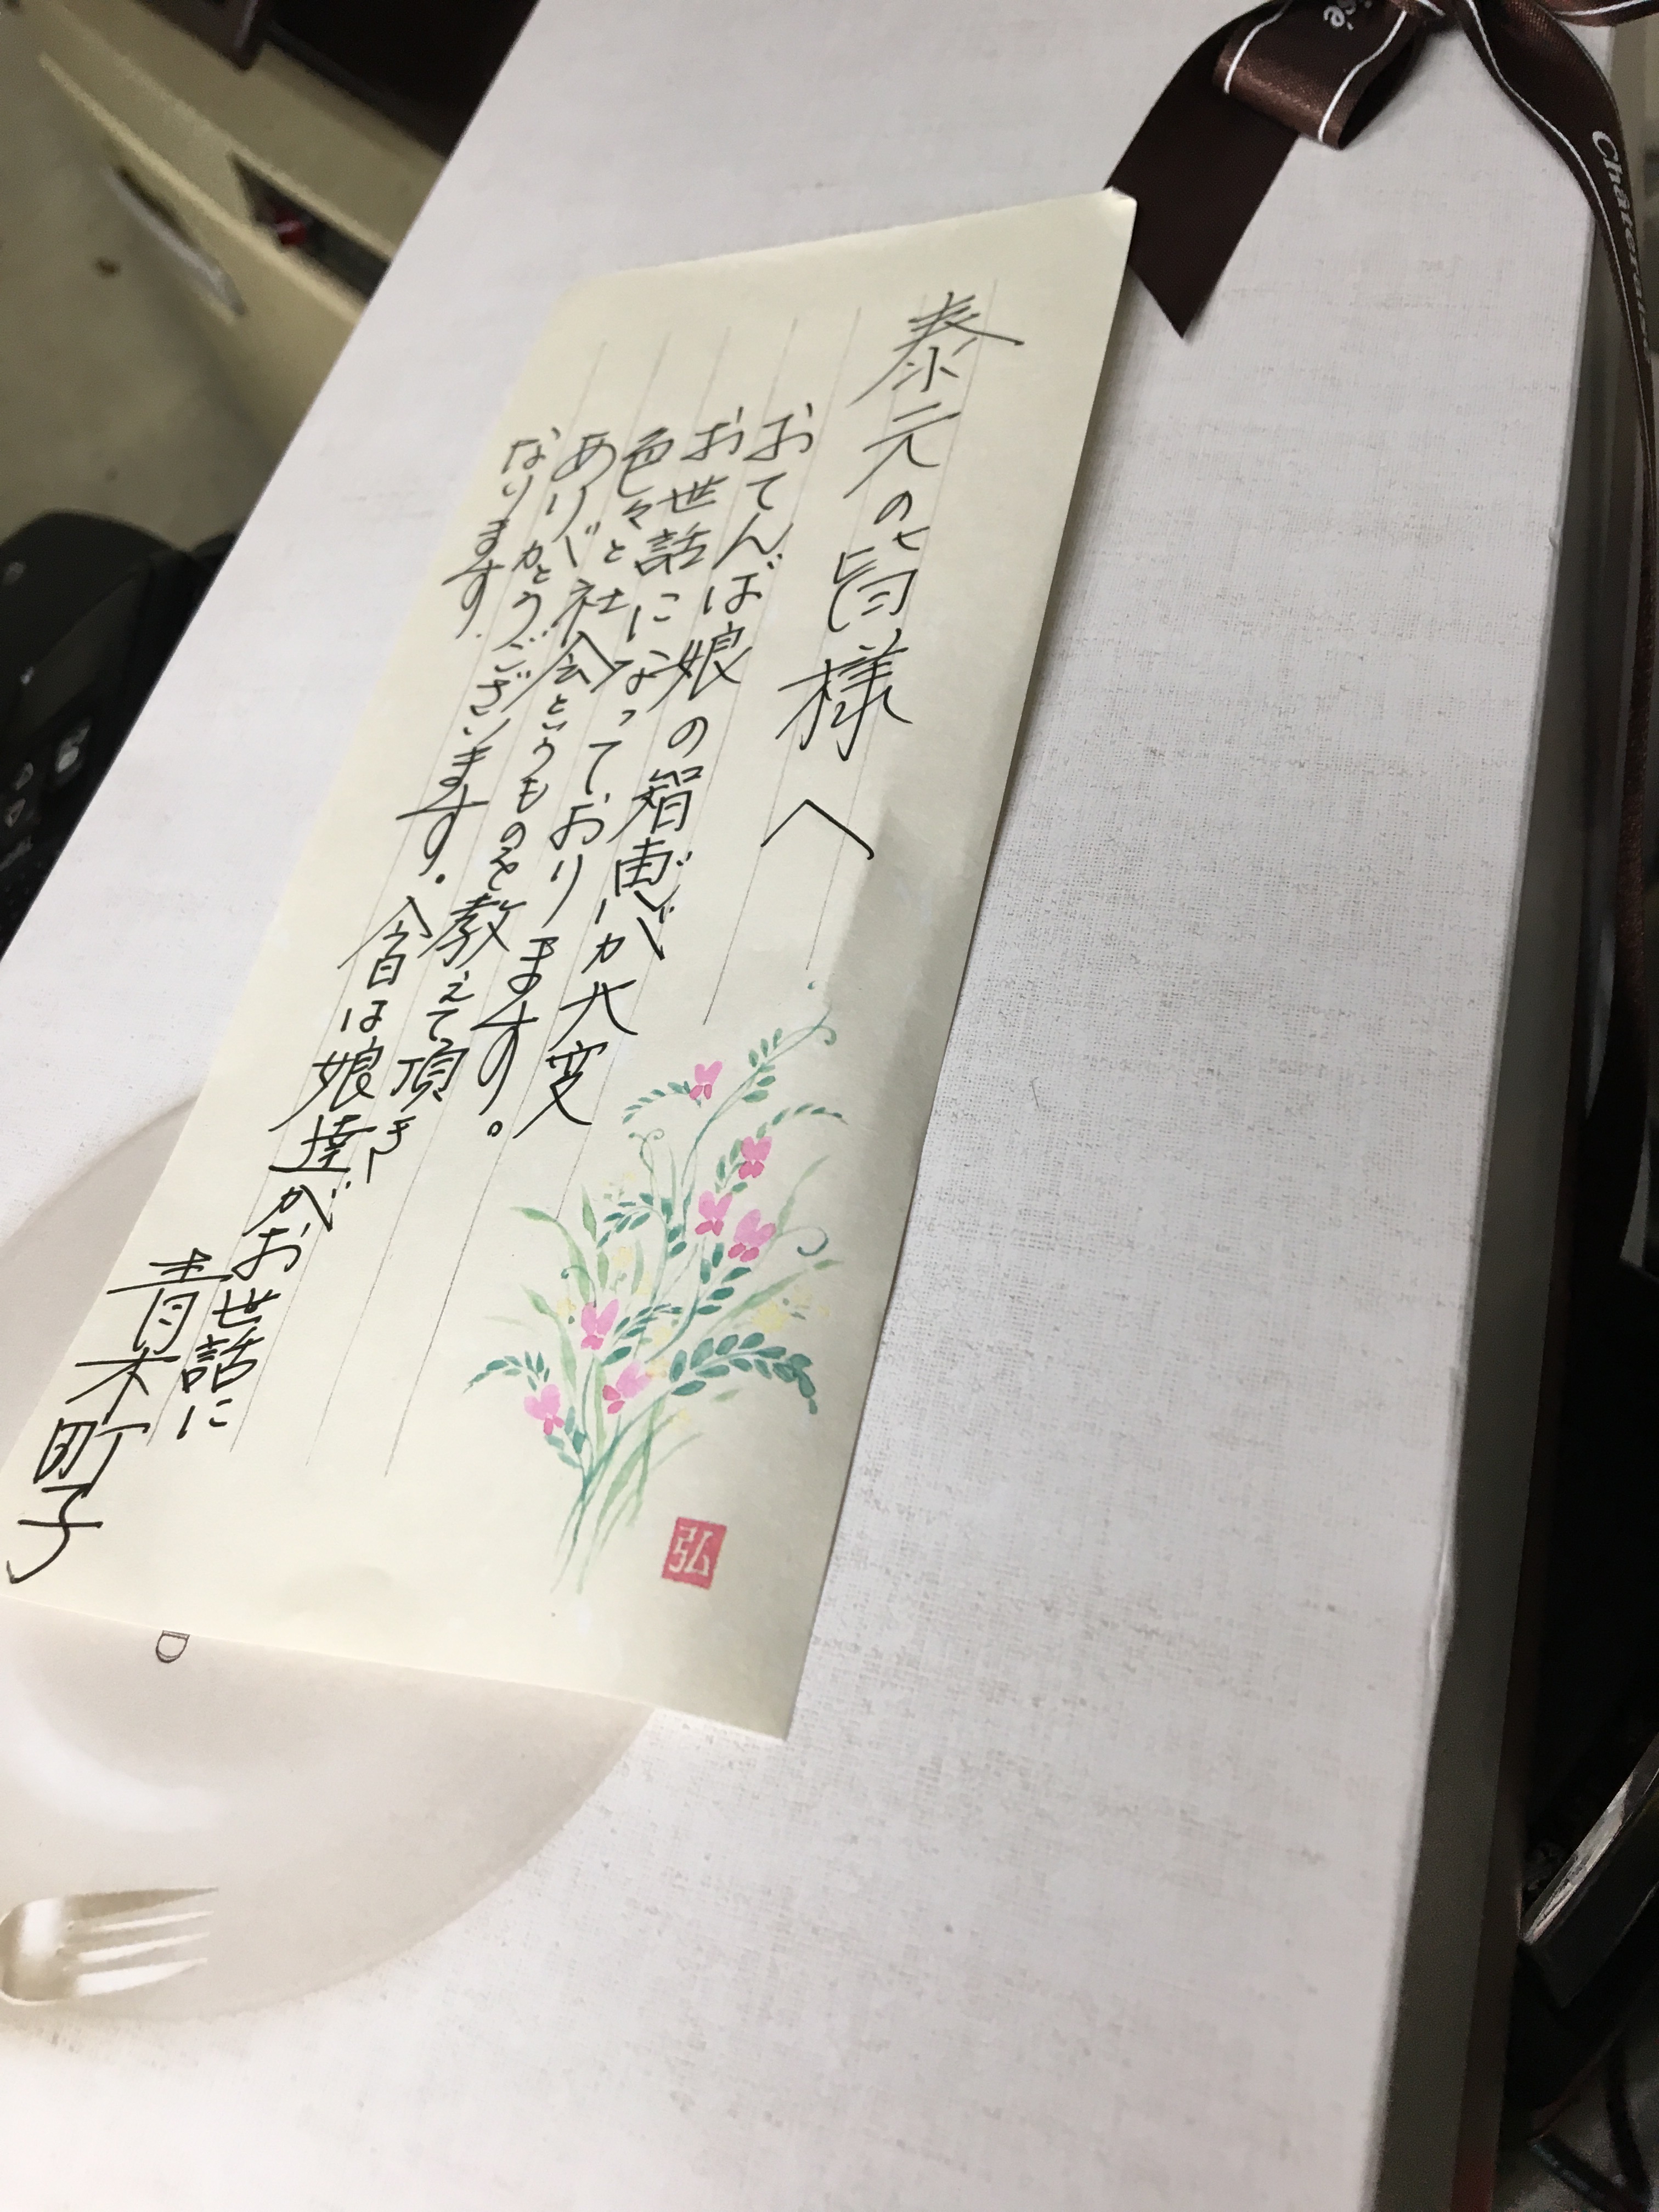 泰元の皆様へ
おてんば娘の智恵が大変
お世話になっております。
色々と社会というものを教えて頂き
ありがとうございます。今日は娘達がお世話に
なります。
青木町子
弘
Chateraisé
D